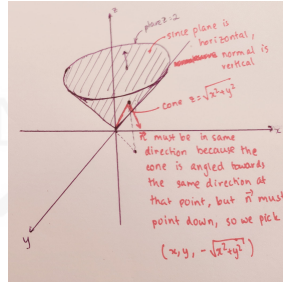 z
plane z=2
since plane is
horizontal,
normal is
vertical
cone z=√x²+y²
x
n⃗ must be in same
direction because the
cone is angled towards
the same direction at
that point, but n⃗ must
point down, so we pick
y
(x, y, -√x²+y²)